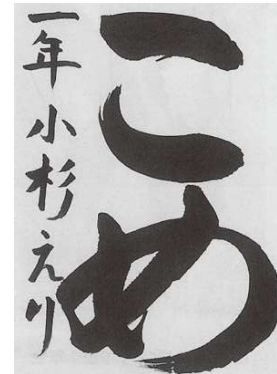 こめ
一年小杉えり